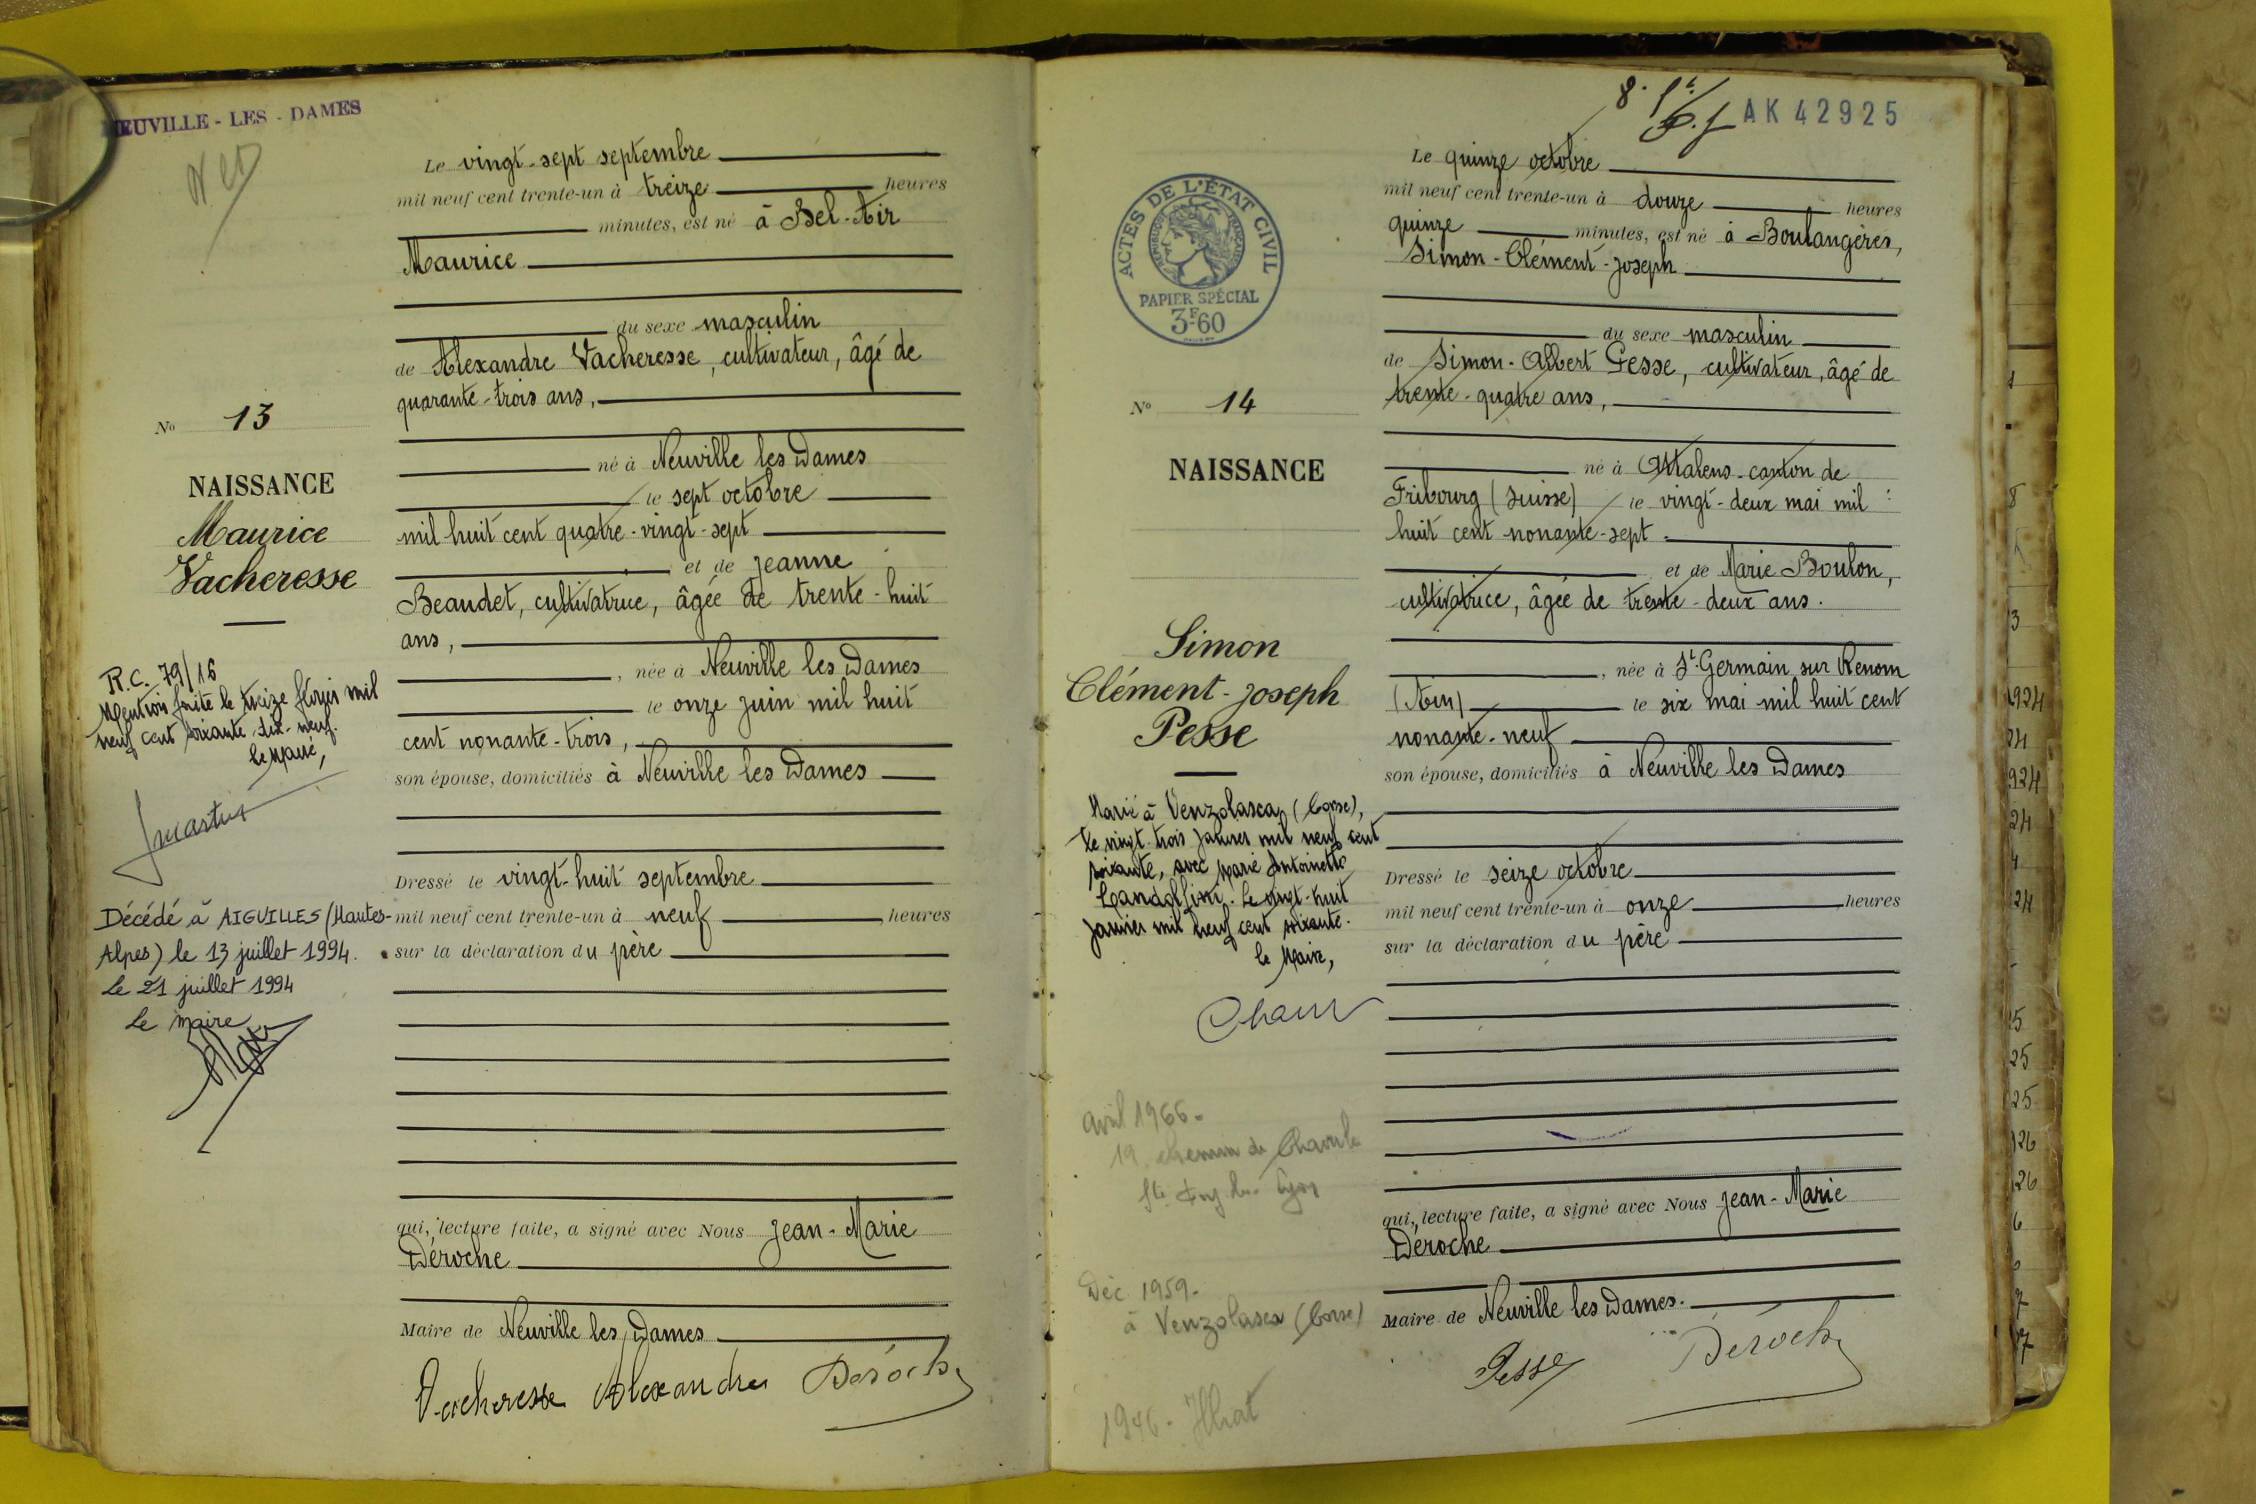 NEUVILLE - LES - DAMES
Le vingt-sept septembre
mil neuf cent trente-un à treize heures
minutes, est né à Bel-Air
Maurice
du sexe masculin
de Alexandre Vacheresse, cultivateur, âgé de
quarante-trois ans,
né à Neuville les Dames
le sept octobre
mil huit cent quatre-vingt-sept
et de Jeanne
Beaudet, cultivatrice, âgée de trente-huit
ans,
, née à Neuville les Dames
le onze juin mil huit
cent nonante-trois,
son épouse, domiciliés à Neuville les Dames
Dressé le vingt-huit septembre
mil neuf cent trente-un à neuf heures
sur la déclaration du père
qui, lecture faite, a signé avec Nous Jean-Marie
Déroche
Maire de Neuville les Dames
Vacheresse Alexandre Déroche
No 13
NAISSANCE
Maurice
Vacheresse
R.C. 79/16
Mention faite le treize mil
neuf cent soixante-dix-neuf.
le Maire,
Décédé à AIGUILLES (Hautes-
Alpes) le 13 juillet 1994.
Le 21 juillet 1994
Le maire
AK 42925
Le quinze octobre
mil neuf cent trente-un à douze heures
quinze minutes, est né à Boulangères,
Simon-Clément-Joseph
du sexe masculin
de Simon-Albert Pesse, cultivateur, âgé de
trente-quatre ans,
né à canton de
Fribourg (Suisse) le vingt-deux mai mil
huit cent nonante-sept.
et de Marie Boulon,
cultivatrice, âgée de trente-deux ans.
, née à St-Germain sur Renom
(Ain) le six mai mil huit cent
nonante-neuf
son épouse, domiciliés à Neuville les Dames
Dressé le seize octobre
mil neuf cent trente-un à onze heures
sur la déclaration du père
qui, lecture faite, a signé avec Nous Jean-Marie
Déroche
Maire de Neuville les Dames.
Pesse Déroche
ACTES DE L'ÉTAT CIVIL
RÉPUBLIQUE FRANÇAISE
PAPIER SPÉCIAL
3F60
No 14
NAISSANCE
Simon
Clément-Joseph
Pesse
Marié à Venzolasca (Corse),
Le vingt-trois janvier mil neuf cent
soixante, avec Marie Antoinette
Le vingt-huit
janvier mil neuf cent soixante.
le Maire,
avril 1966-
19 chemin de
Déc 1959-
à Venzolasca (Corse)
1946-